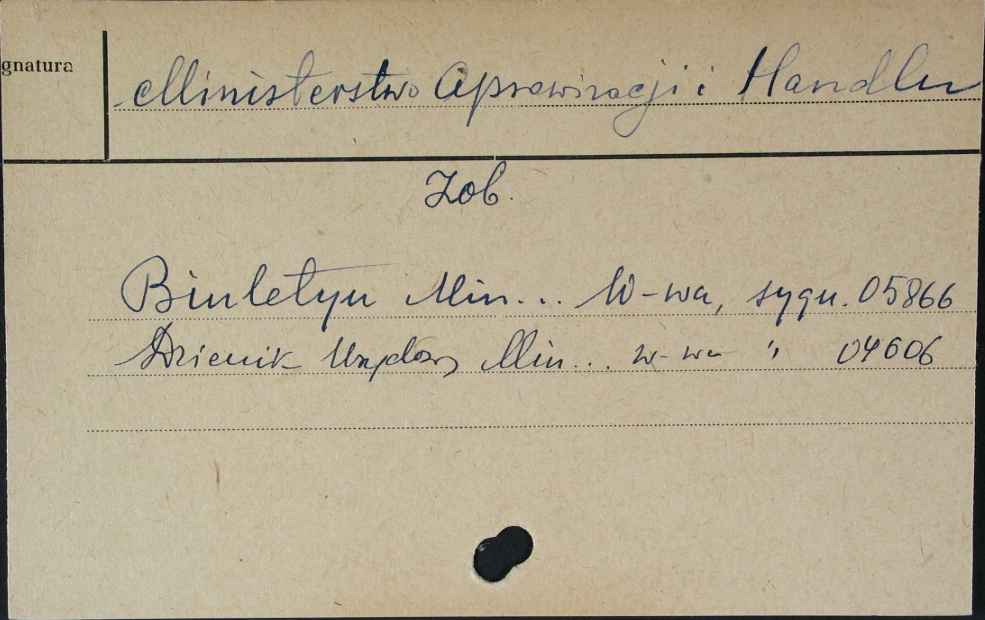 gnatura
Ministerstwo Aprowizacji i Handlu
Zob.
Biuletyn Min... W-wa, sygn. 05866
Dziennik Urzędowy Min... W-wa " 04606